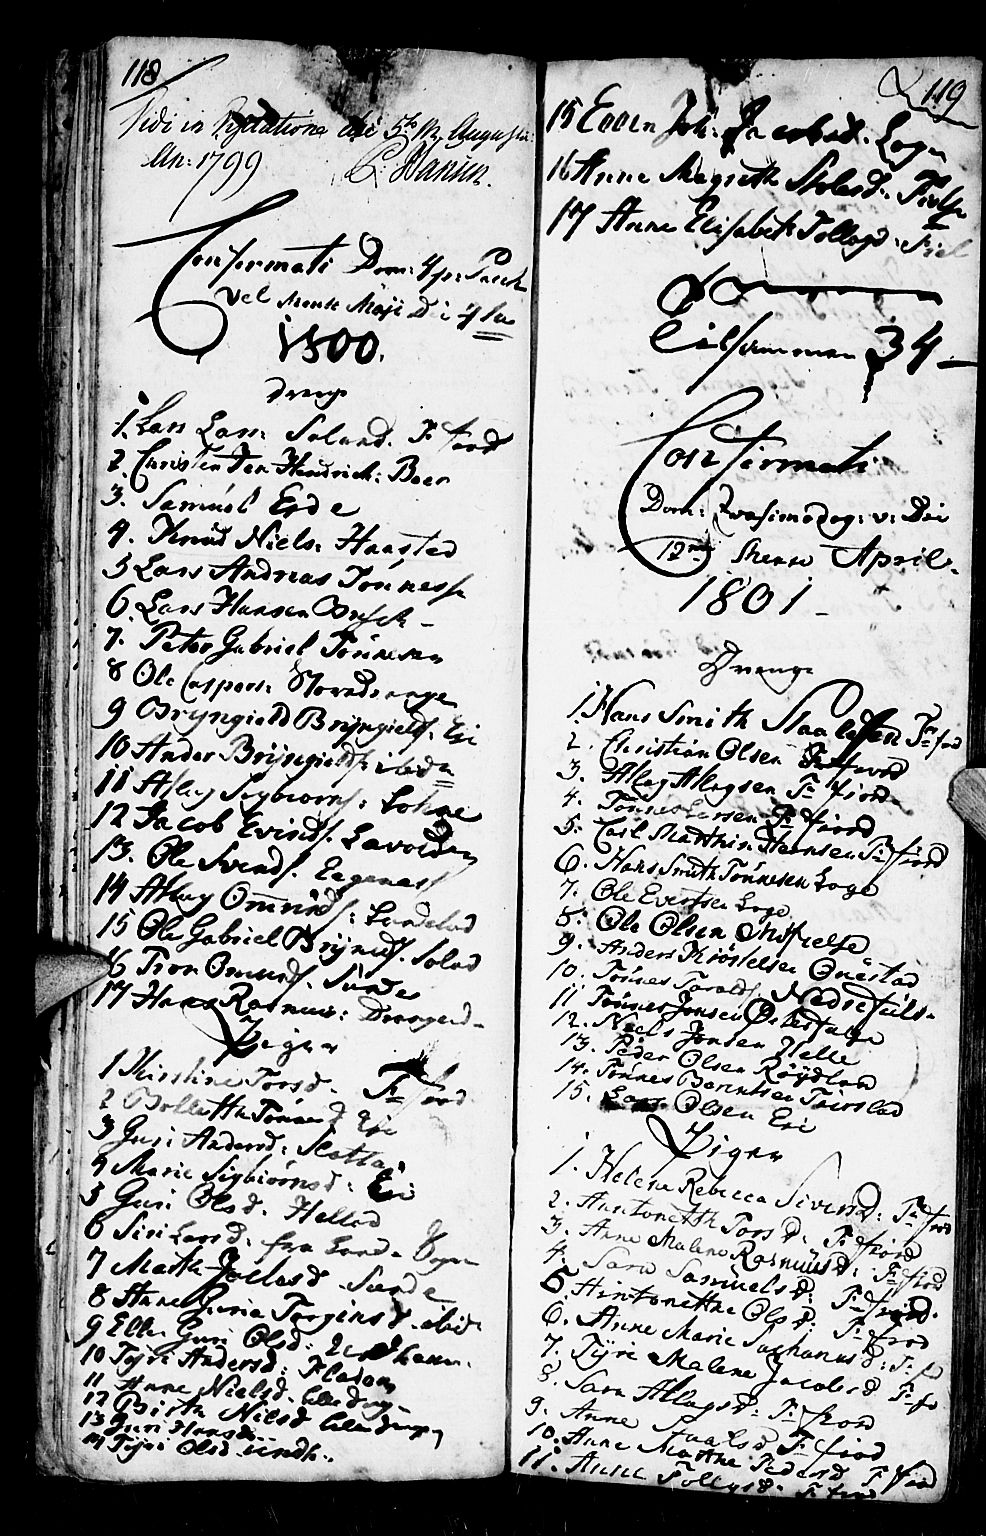 118
Vidi in Visitatione die 5te Augusti
An: 1799 C. Hansen.
Confirmati Dom: 4 p: Pasch
vel Mense Maji Die
1800.
Drenge
1. Lars Lars: Soland. F: fiord
2. Christen Jen Hendrich: Boer
3. Samuel Eide
4. Knud Niels: Haasted
5 Lars Andreas Tønness
6. Lars Hansen
7. Peter Gabriel Tønnesen
8 Ole Caspers: Stordrange
9 Bryngield Bryngields. Eie
10 Anders Bryngields ibidm
11 Aslag Sigbiorns: Lohne
12 Jacob Evinds. Lavolden
13. Ole Svends. Eegenæss
14 Aslag Omunds: Landelad
15 Ole Gabriel Brynilds. Solad
16 Tron Omunds. Sunde
17 Hans Rasmus: Drangeid
Piger
1 Kirstine Torsd. F: fiord
2 Bolletha Tønnesd Eie
3 Guri Andersd: Sletta
4 Marie Sigbiørnsd: Eie
5 Guri Olsd. Hellad
6 Siri Larsd: fra Lands Sogn
7 Marthe Joelsd Sunde
8 Anne Gurie Torgiusd ibid:
9 Ellen Guri Olsd:
10 Tyri Andersd: Fladen
11 Anne Nielsd.
12 Birth Nielsd
13 Guri Hansd.
14 Tyri Olsd
119
15 Ellen Joh: Jacobsd. Loge
16 Anne Magreth Stolesd. Fielse
17 Anne Elisabeth Tollagsd: Fiel
Tilsammen 34
Confirmati
Dom: Qvasimodog: v: Die
12me Mense April.
1801
Drenge
1. Hans Smith Staalesen F: fiord
2. Christian Olsen F: fiord
3. Aslag Aslagsen F: fiord
4. Tønnes Larsen F: fiord
5. Carl Matthias Hernsen F: fiord
6. Hans Smith Tønnesen Loge
7. Ole Evertsen Loge
8. Ole Olsen
9. Anders Kiøstelsen Qvæstad
10. Tønnes Taralds Nedrefiels.
11. Tønnes Jonsen
12. Niels Jonsen Helle
13. Peder Olsen Røydland
14. Tønnes Berentsen Tiorslad
15. Lars Olsen Eie
Piger
1. Helene Rebecca Siversd: F: fiord
2. Anntonetth Torsd: F: fiord
3. Anne Malene Rasmusd: F: fiord
4. Sara Samuelsd: F: fiord.
5. Antonethe Olsd: F: fiord
6. Anne Marie Sachariasd: F: f
7. Tyri Malene Jacobsd F: fi
8. Sara Aslagsd: F: fiord
9. Anne Staalsd F: fiord
10. Anne Marthe Pedersd F: fiord
11. Anne Tollagsd. F: fiord